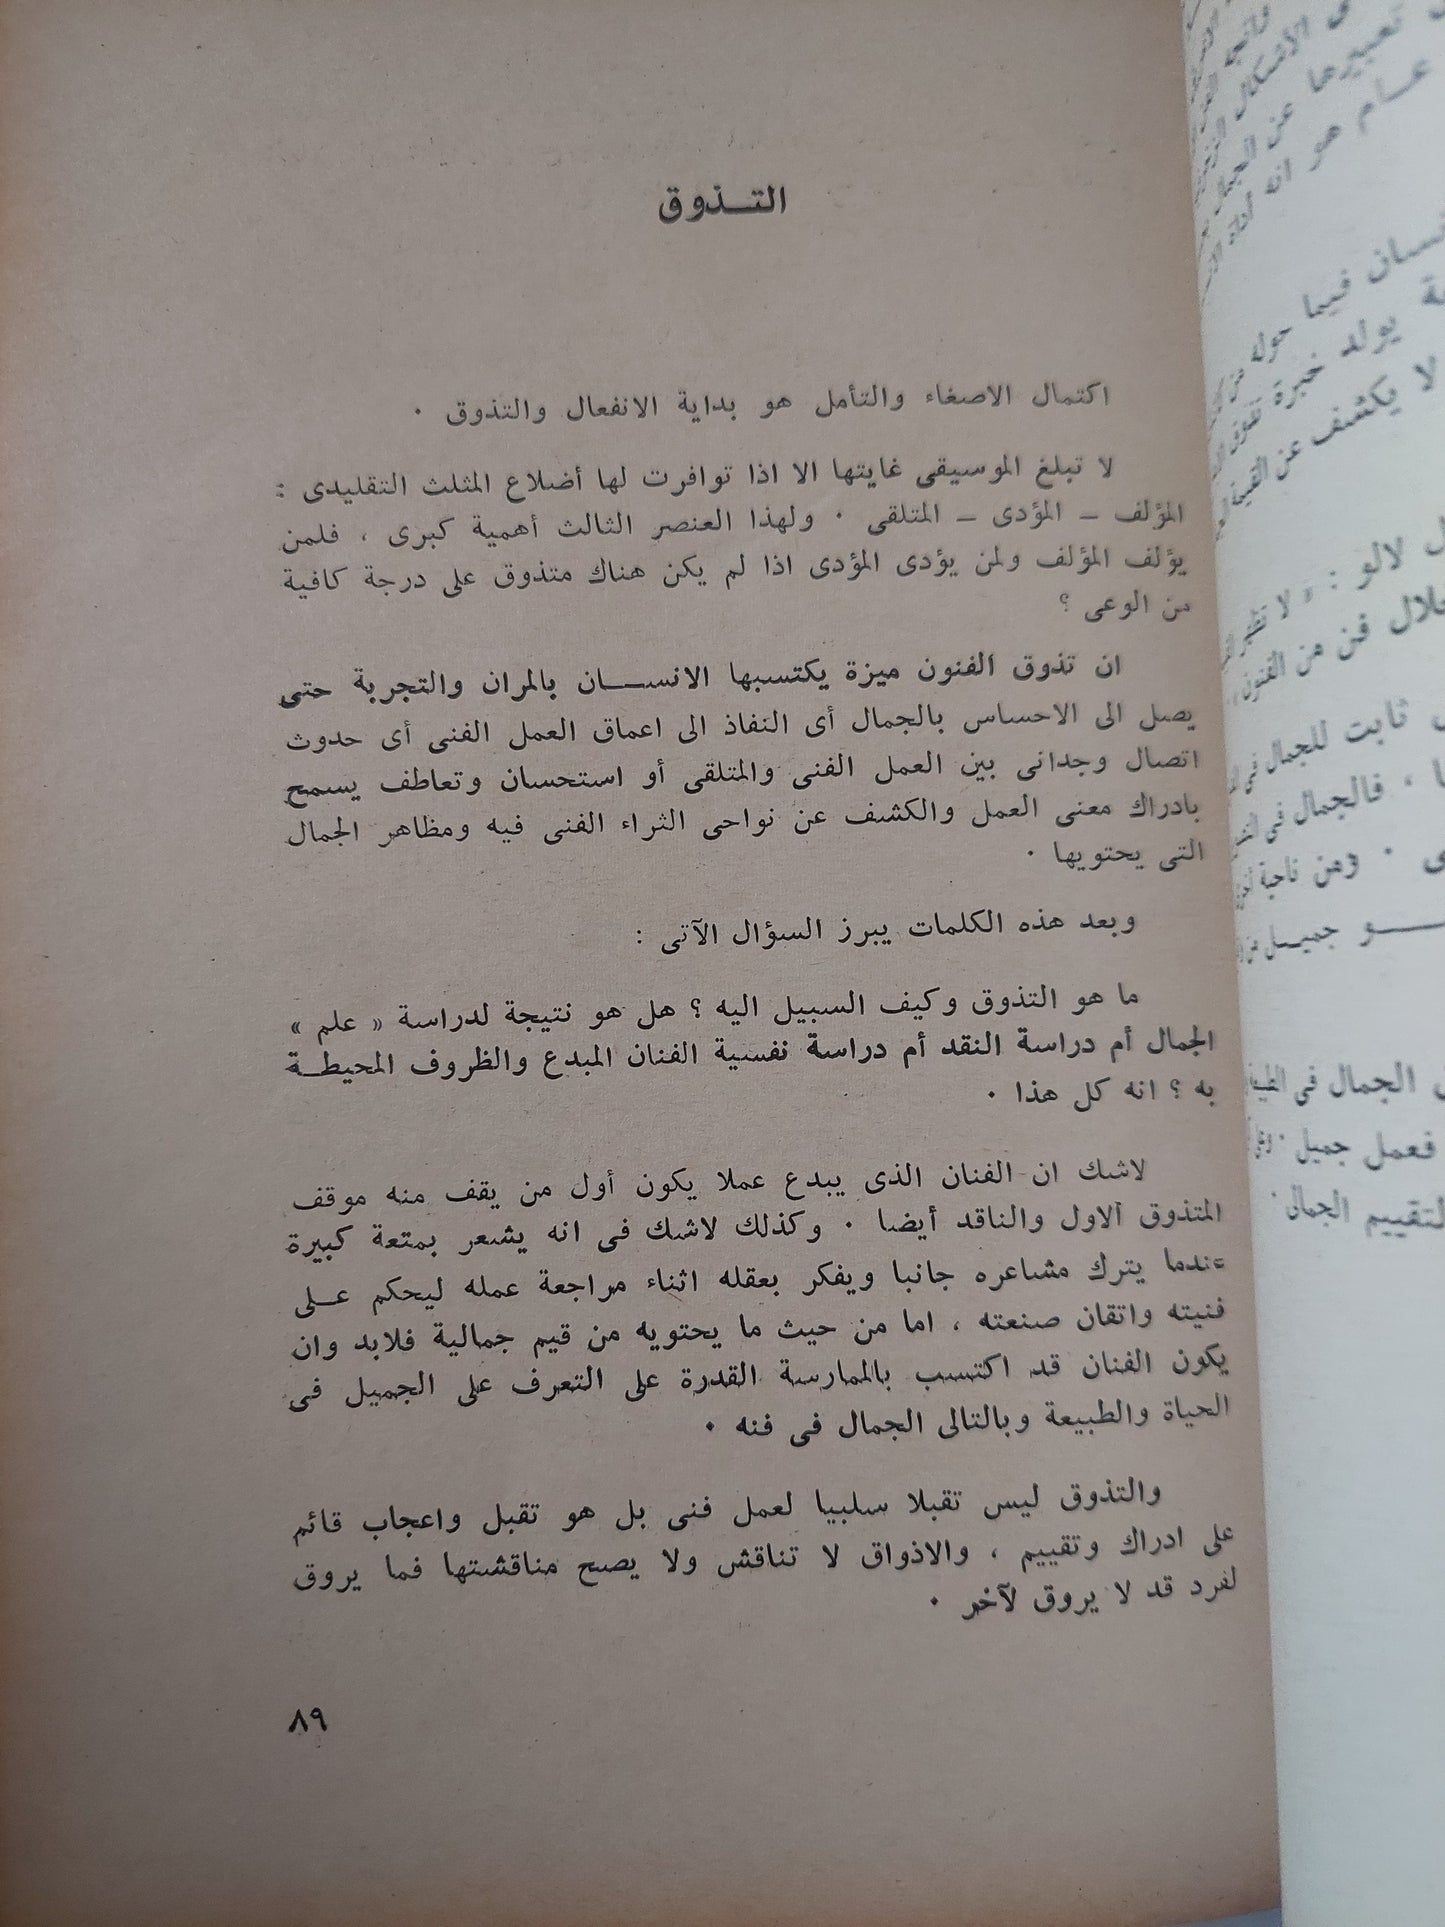 التــذوق
اكتمال الاصغاء والتأمل هو بداية الانفعال والتذوق ٠
لا تبلغ الموسيقى غايتها الا اذا توافرت لها أضلاع المثلث التقليدى :
المؤلف ــ المؤدى ــ المتلقى ٠ ولهذا العنصر الثالث أهمية كبرى ، فلمن
يؤلف المؤلف ولمن يؤدى المؤدى اذا لم يكن هناك متذوق على درجة كافية
من الوعى ؟
ان تذوق الفنون ميزة يكتسبها الانســـان بالمران والتجربة حتى
يصل الى الاحساس بالجمال أى النفاذ الى اعماق العمل الفنى أى حدوث
اتصال وجدانى بين العمل الفنى والمتلقى أو استحسان وتعاطف يسمح
بادراك معنى العمل والكشف عن نواحى الثراء الفنى فيه ومظاهر الجمال
التى يحتويها ٠
وبعد هذه الكلمات يبرز السؤال الآتى :
ما هو التذوق وكيف السبيل اليه ؟ هل هو نتيجة لدراسة « علم »
الجمال أم دراسة النقد أم دراسة نفسية الفنان المبدع والظروف المحيطــة
به ؟ انه كل هذا ٠
لاشك ان الفنان الذى يبدع عملا يكون أول من يقف منه موقف
المتذوق الاول والناقد أيضا ٠ وكذلك لاشك فى انه يشعر بمتعة كبيرة
عندما يترك مشاعره جانبا ويفكر بعقله اثناء مراجعة عمله ليحكم عــلى
فنيته واتقان صنعته ، اما من حيث ما يحتويه من قيم جمالية فلابد وان
يكون الفنان قد اكتسب بالممارسة القدرة على التعرف على الجميل فى
الحياة والطبيعة وبالتالى الجمال فى فنه ٠
والتذوق ليس تقبلا سلبيا لعمل فنى بل هو تقبل واعجاب قائم
على ادراك وتقييم ، والاذواق لا تناقش ولا يصح مناقشتها فما يروق
لفرد قد لا يروق لآخر ٠
٨٩
تعبيرها عن الجمال
عــام هو انه أداة
فيما حوله
يولد خبرة تفوق
لا يكشف عن القيمة
لالو : « لا تظهر
خلال فن من الفنون
ثابت للجمال فى
، فالجمال فى
٠ ومن ناحية
جميــل من
الجمال فى
فعمل جميل ٠
التقييم الجمالى ٠